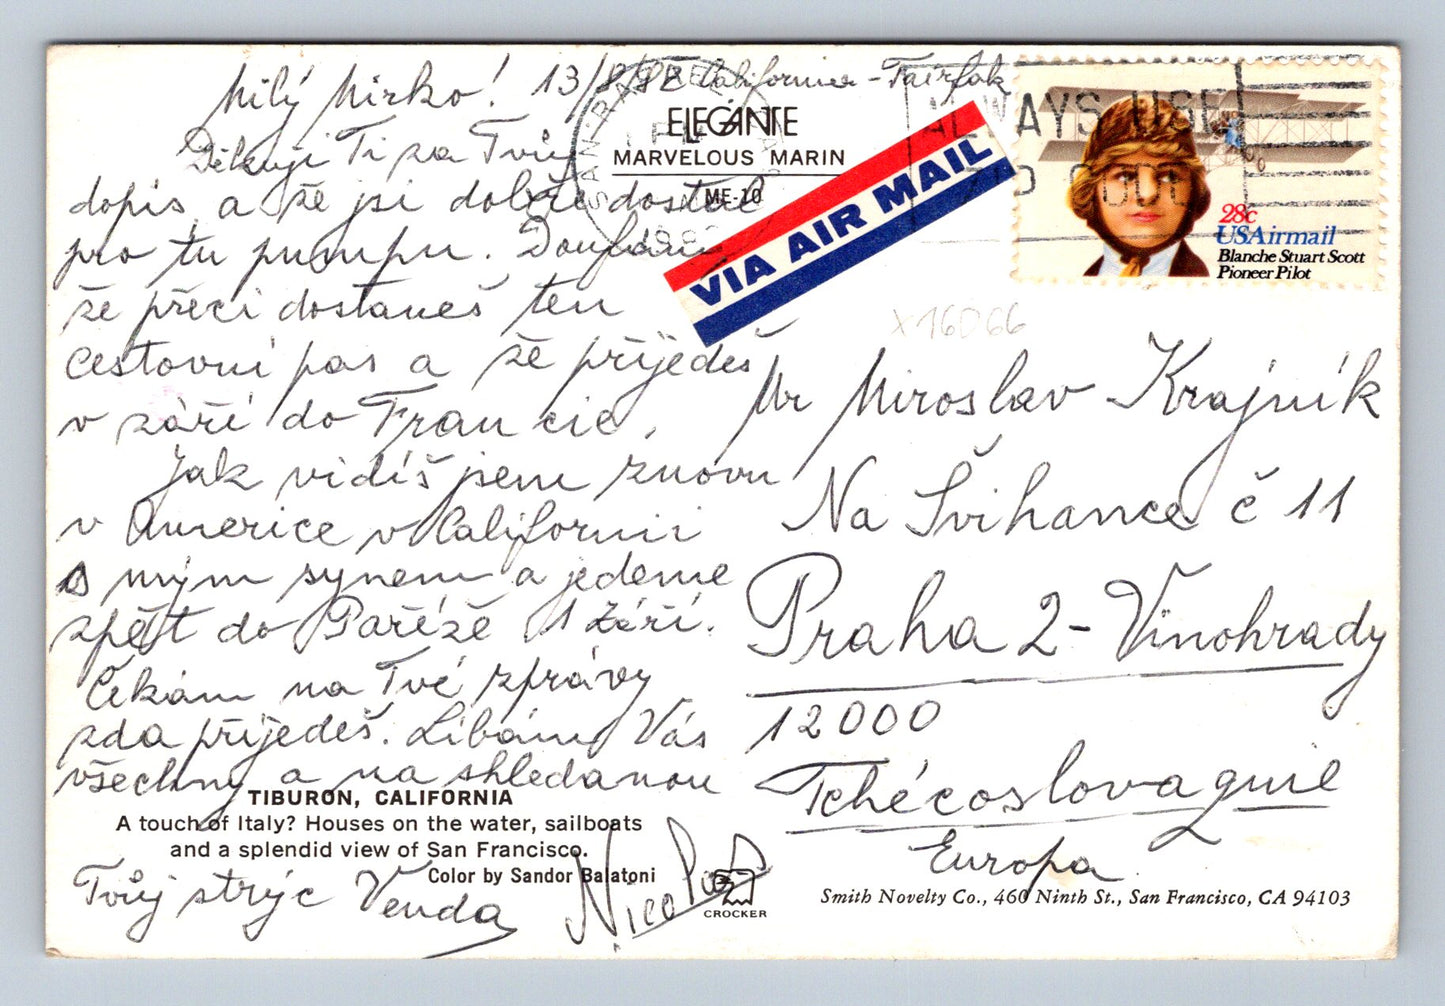 Milý Mirko! 13/8/82 Californie - Fairfax
Děkuji Ti za Tvůj
dopis, a že jsi dobře dostal
pro tu pumpu. Doufám
že přeci dostaneš ten
cestovní pas a že přijedeš
v září do Francie.
Jak vidíš jsem znovu
v Americe v Californii
s mým synem a jedeme
zpět do Paříže 1 Září.
Čekám na Tvé zprávy
zda přijedeš. Líbám Vás
všechny a na shledanou
Tvůj strýc Venda
Nicolas
ELEGANTE
MARVELOUS MARIN
ME-10
SAN RAFAEL
1982
ALWAYS USE
ZIP CODE
VIA AIR MAIL
28c
USAirmail
Blanche Stuart Scott
Pioneer Pilot
x16D66
Mr Miroslav Krajník
Na Švihance č 11
Praha 2 - Vinohrady
12000
Tchécoslovaquie
Europa
TIBURON, CALIFORNIA
A touch of Italy? Houses on the water, sailboats
and a splendid view of San Francisco.
Color by Sandor Balatoni
CROCKER
Smith Novelty Co., 460 Ninth St., San Francisco, CA 94103